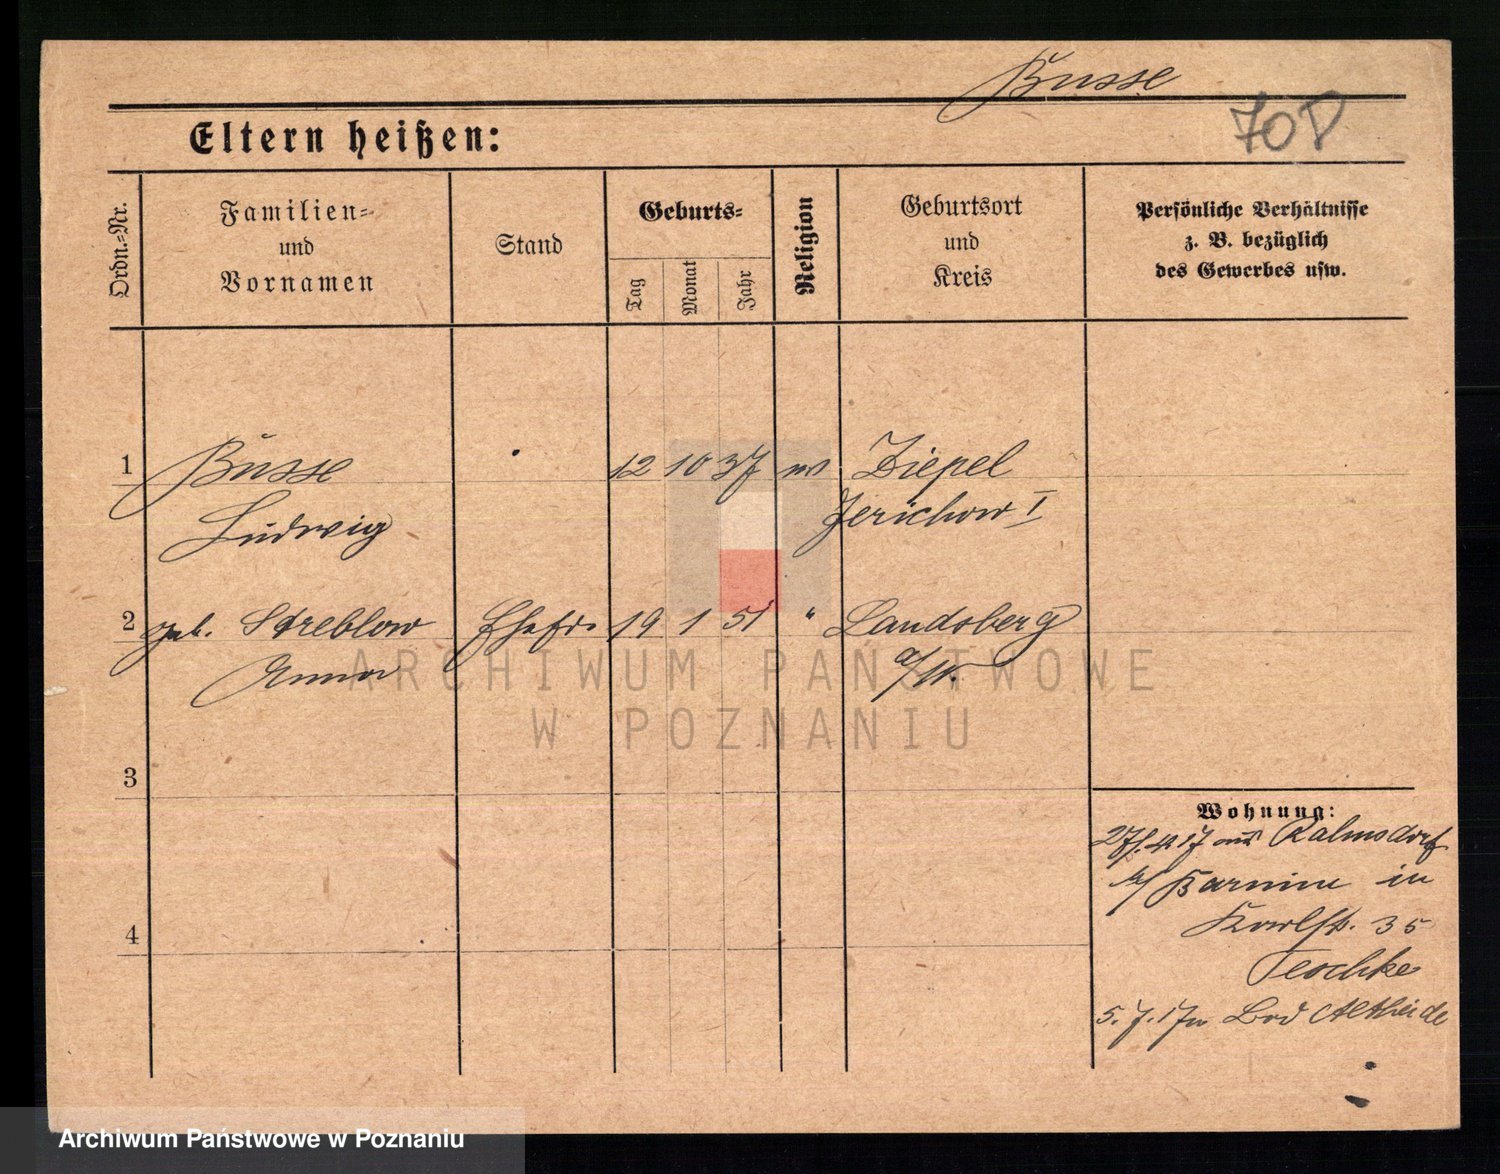 Busse
70 P
Eltern heißen:
Ordn.-Nr.
Familien-
und
Vornamen
Stand
Geburts-
Tag
Monat
Jahr
Religion
Geburtsort
und
Kreis
Persönliche Verhältnisse
z. B. bezüglich
des Gewerbes usw.
1 Busse 12 10 37 Ziepel
Ludwig Jerichow I
2 geb. Streblow Ehefr. 19 1 51 " Landsberg
Anna a/W.
3
4
Wohnung:
27/4.17 aus
a/ Barnim in
Karlstr. 35
Teschke
5.7.17 n Bad Altheide
ARCHIWUM PAŃSTWOWE
W POZNANIU
Archiwum Państwowe w Poznaniu